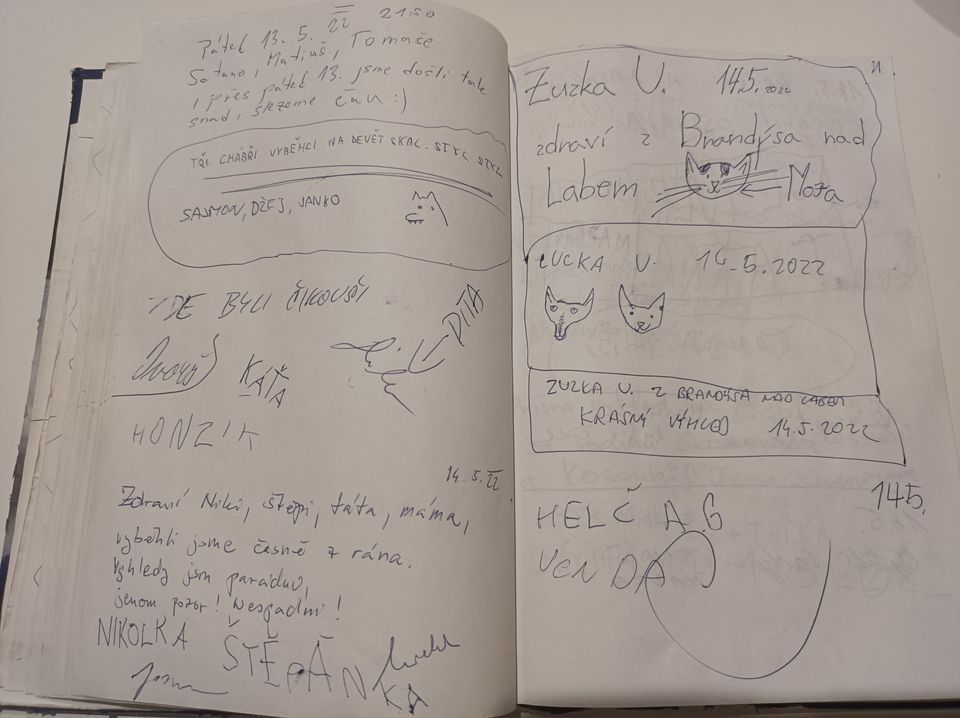 Pátek 13. 5. 22 21:50
Matiuš, Tomaše
i přes pátek 13. jsme došli
snad, slezeme :)
TŘI CHÁBŘI VYBĚHCI NA DEVĚT SKAL. STYL STYL
SAJMON, DŽEJ, JANKO
ZDE BYLI ČIKOUŠI
DITA
KAŤA
HONZIK
14. 5. 22
Zdraví Niki, Štěpi, táta, máma,
vyběhli jsme časně z rána.
Výhledy jsou parádní,
jenom pozor! Nespadni!
NIKOLKA
ŠTĚPÁNKA
21
Zuzka U. 14.5. 2022
zdraví z Brandýsa nad
Labem
ZUCKA U. 14.5.2022
ZUZKA U. Z BRANDÝSA NAD LABEM
KRÁSNÝ VÝHLED 14.5.2022
14.5.
HELČA 6
VENDA